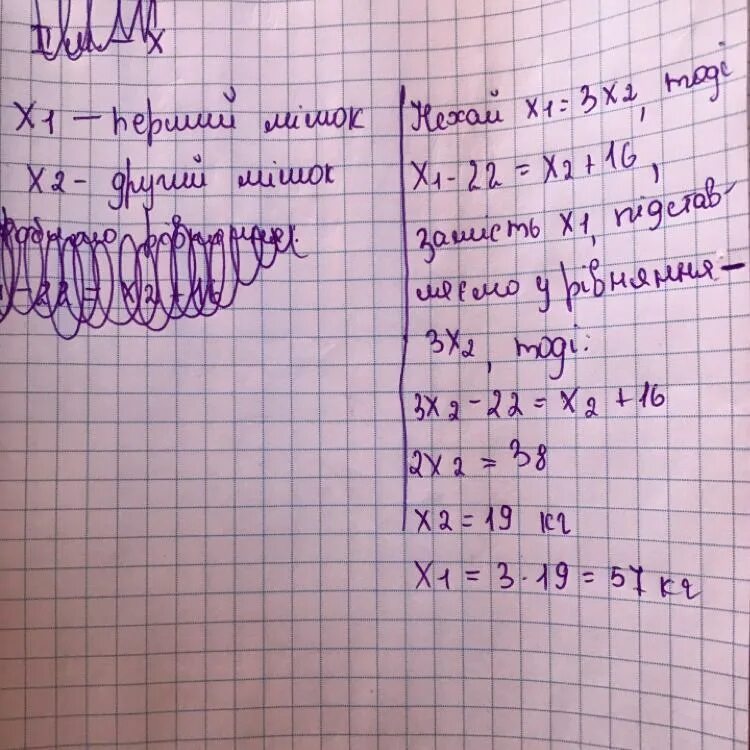 X1 – перший мішок
X2 - другий мішок
Нехай X1 = 3X2, тоді
X1 - 22 = X2 + 16,
замість X1, підстав-
ляємо у рівняння –
3X2, тоді:
3X2 - 22 = X2 + 16
2X2 = 38
X2 = 19 кг
X1 = 3 · 19 = 57 кг